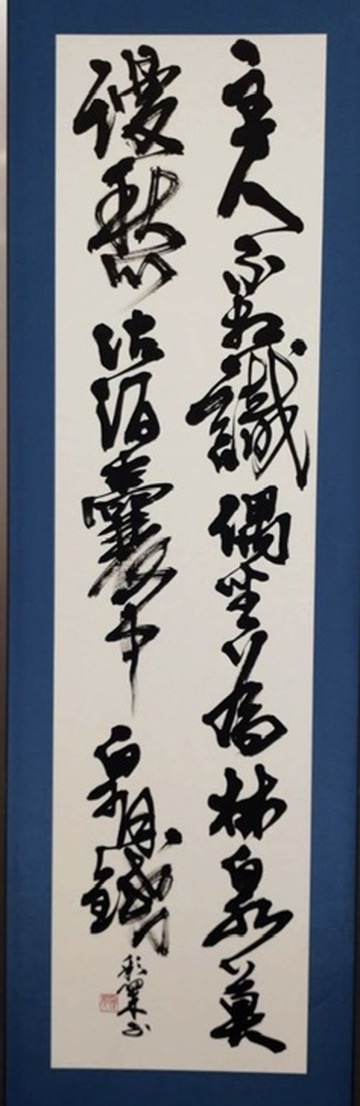 主人不相識偶坐為林泉莫
謾愁沽酒囊中自有錢